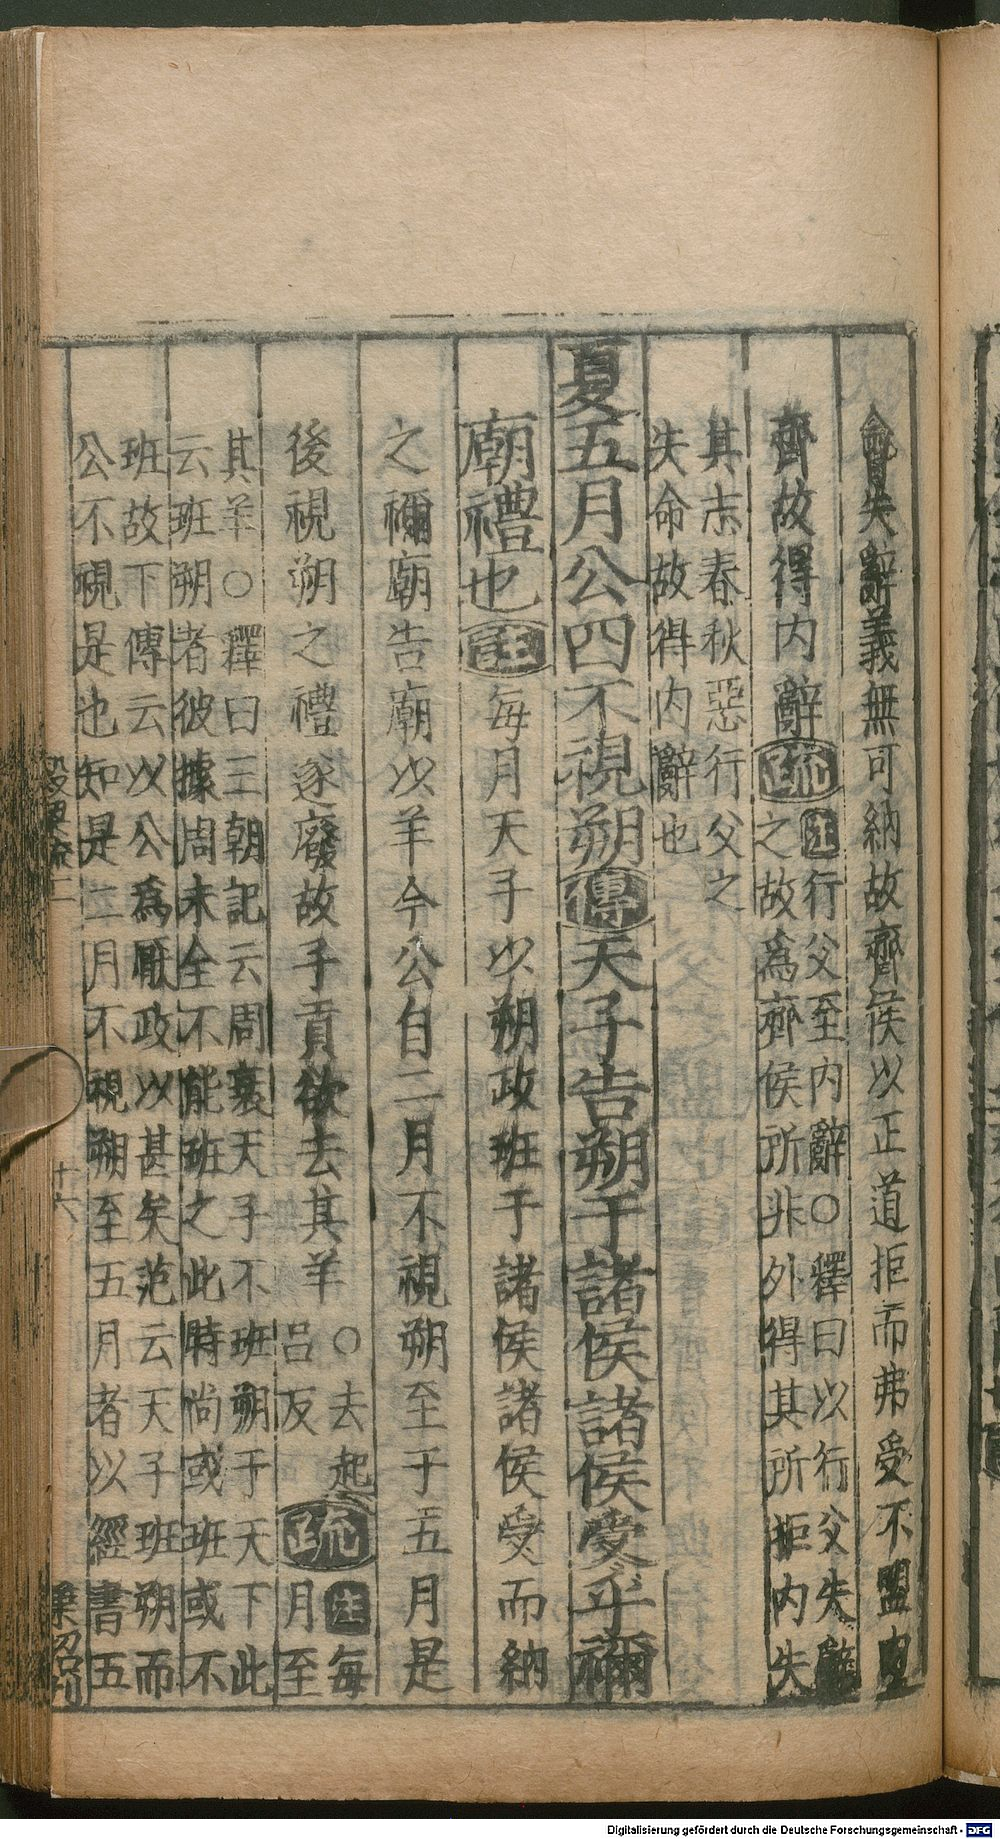 會失辭義無可納故齊侯以正道拒而弗受不盟由
齊故得內辭疏注行父至內辭○釋曰以行父失辭
之故為齊侯所非外得其所拒內失
其志春秋惡行父之
失命故得內辭也
夏五月公四不視朔傳天子告朔于諸侯諸侯受乎禰
廟禮也注每月天子以朔政班于諸侯諸侯受而納
之禰廟告廟以羊今公自二月不視朔至于五月是
後視朔之禮遂廢故子貢欲去其羊○去起
呂反疏注每
月至
其羊○釋曰三朝記云周衰天子不班朔于天下此
云班朔者彼據周末全不能班之此時尚或班或不
班故下傳云以公為厭政以甚矣范云天子班朔而
公不視是也知是二月不視朔至五月者以經書五
十六
Digitalisierung gefördert durch die Deutsche Forschungsgemeinschaft - DFG